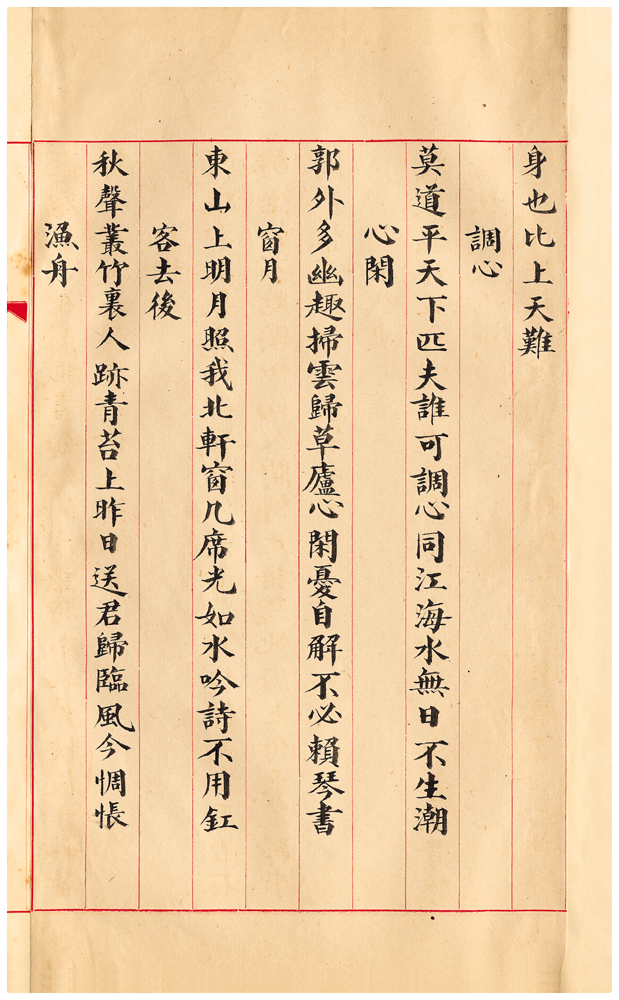 身也比上天難
調心
莫道平天下匹夫誰可調心同江海水無日不生潮
心閑
郭外多幽趣掃雲歸草廬心閑憂自解不必賴琴書
窗月
東山上明月照我北軒窗几席光如水吟詩不用釭
客去後
秋聲叢竹裏人跡青苔上昨日送君歸臨風今惆悵
漁舟